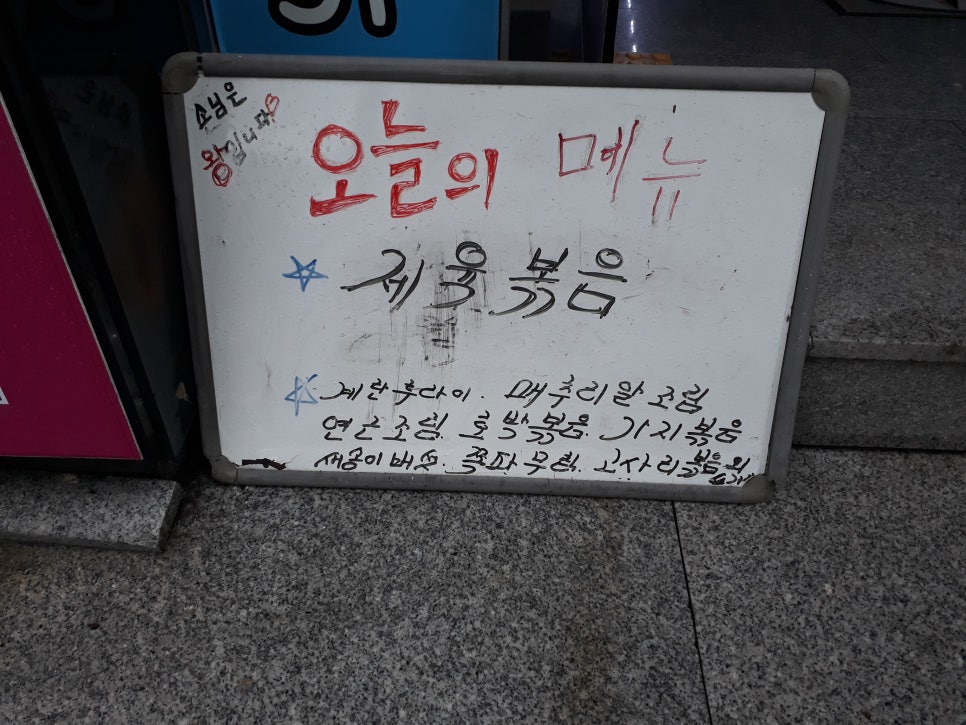 손님은
왕입니다
오늘의 메뉴
제육볶음
계란후라이. 매추리알조림
연근조림. 호박볶음. 가지볶음
새송이버섯. 쪽파무침. 고사리볶음외